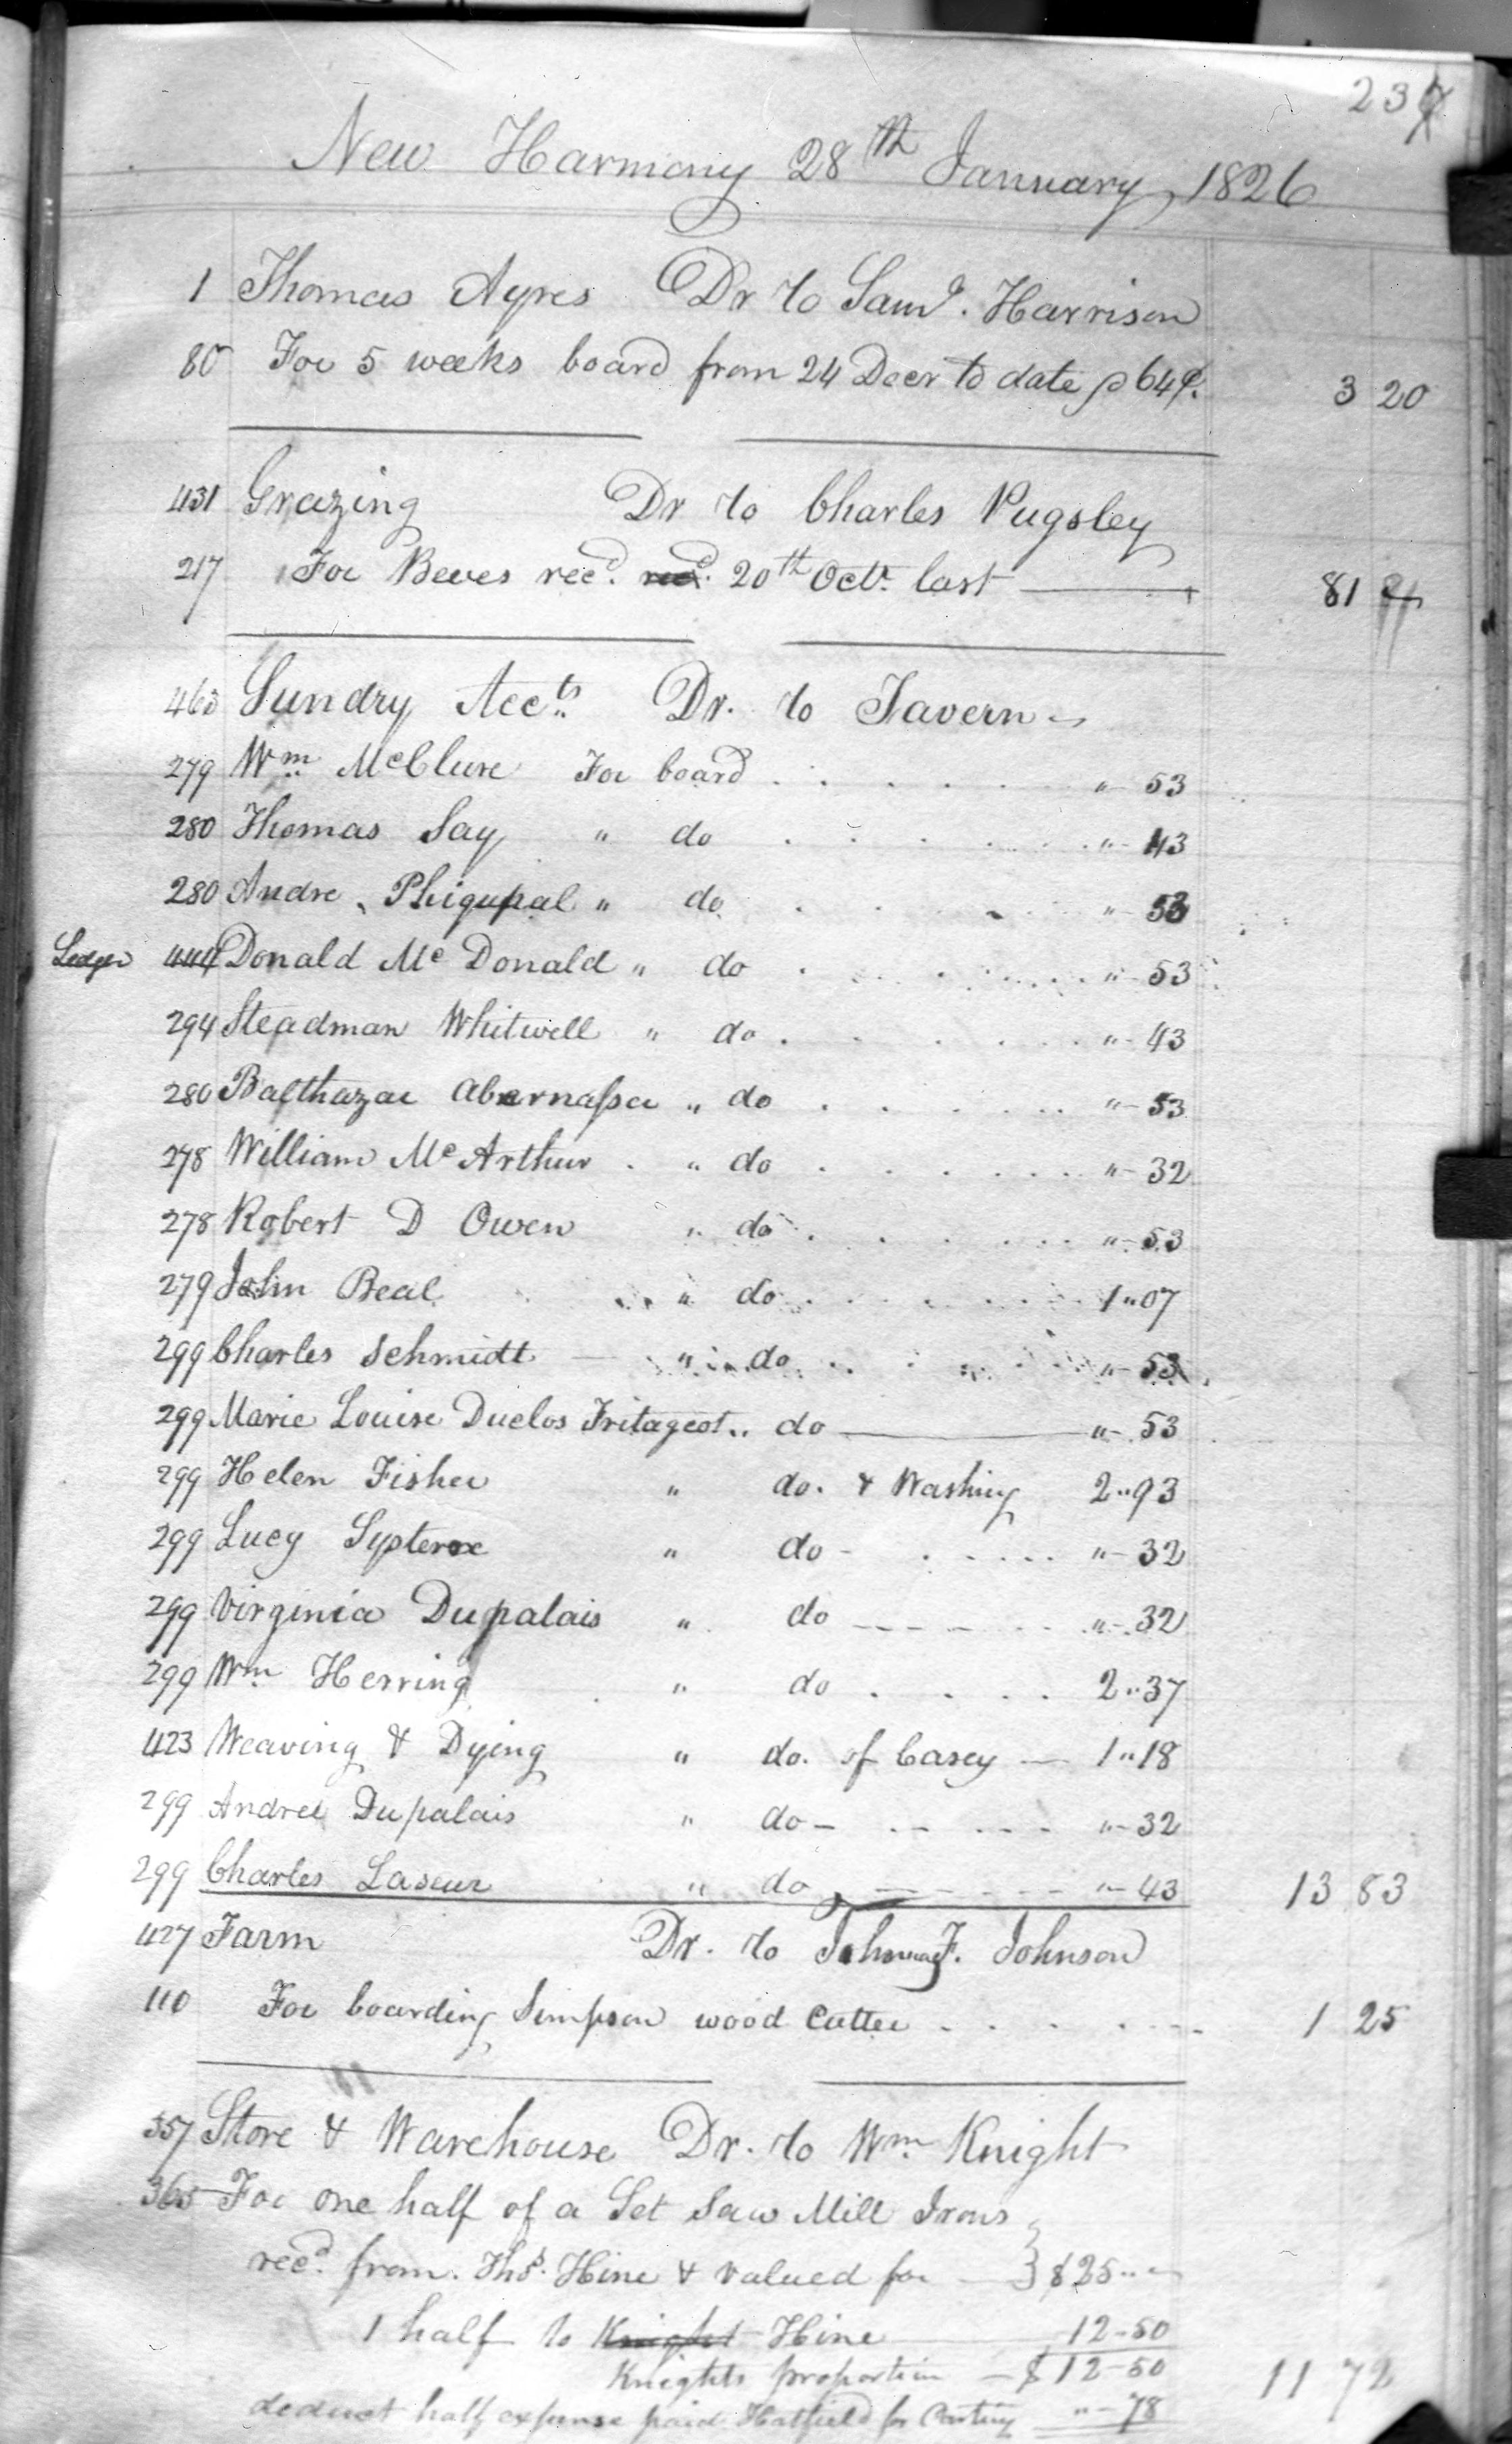 237
New Harmony 28th January 1826
1 Thomas Ayres Dr to Saml. Harrison
80 For 5 weeks board from 24 Decr to date p 64¢. 3 20
431 Grazing Dr to Charles Pugsley
217 For Beves recd. recd. 20th Octr. last 81
463 Sundry Accts Dr. to Tavern
279 Wm McClure For board " 53
280 Thomas Say " do " 43
280 Andre Phiquepal " do " 53
Ledger 444 Donald McDonald " do " 53
294 Steadman Whitwell " do " 43
280 Balthazar Abernasser " do " 53
278 William McArthur " do " 32
278 Robert D Owen " do " 53
279 John Beal " do 1 " 07
299 Charles Schmidt " do " 53
299 Marie Louise Duclos Fritageot " do " 53
299 Helen Fisher " do. & Washing 2 " 93
299 Lucy Systerre " do " 32
299 Virginia Dupalais " do " 32
299 Wm Herring " do 2 " 37
423 Weaving & Dying " do. of Casey 1 " 18
299 Andrel Dupalais " do " 32
299 Charles Laseur " do " 43 13 83
427 Farm Dr. to F. Johnson
110 For boarding Simpson wood Cutter 1 25
357 Store & Warehouse Dr. to Wm Knight
365 For one half of a Set Saw Mill Irons
recd. from Thos. Hine & valued for } $25 " -
1 half to Knight Hine 12-50
Knights proportion - $12-50
deduct half expense paid Hatfield for Carting " - 78 11 72